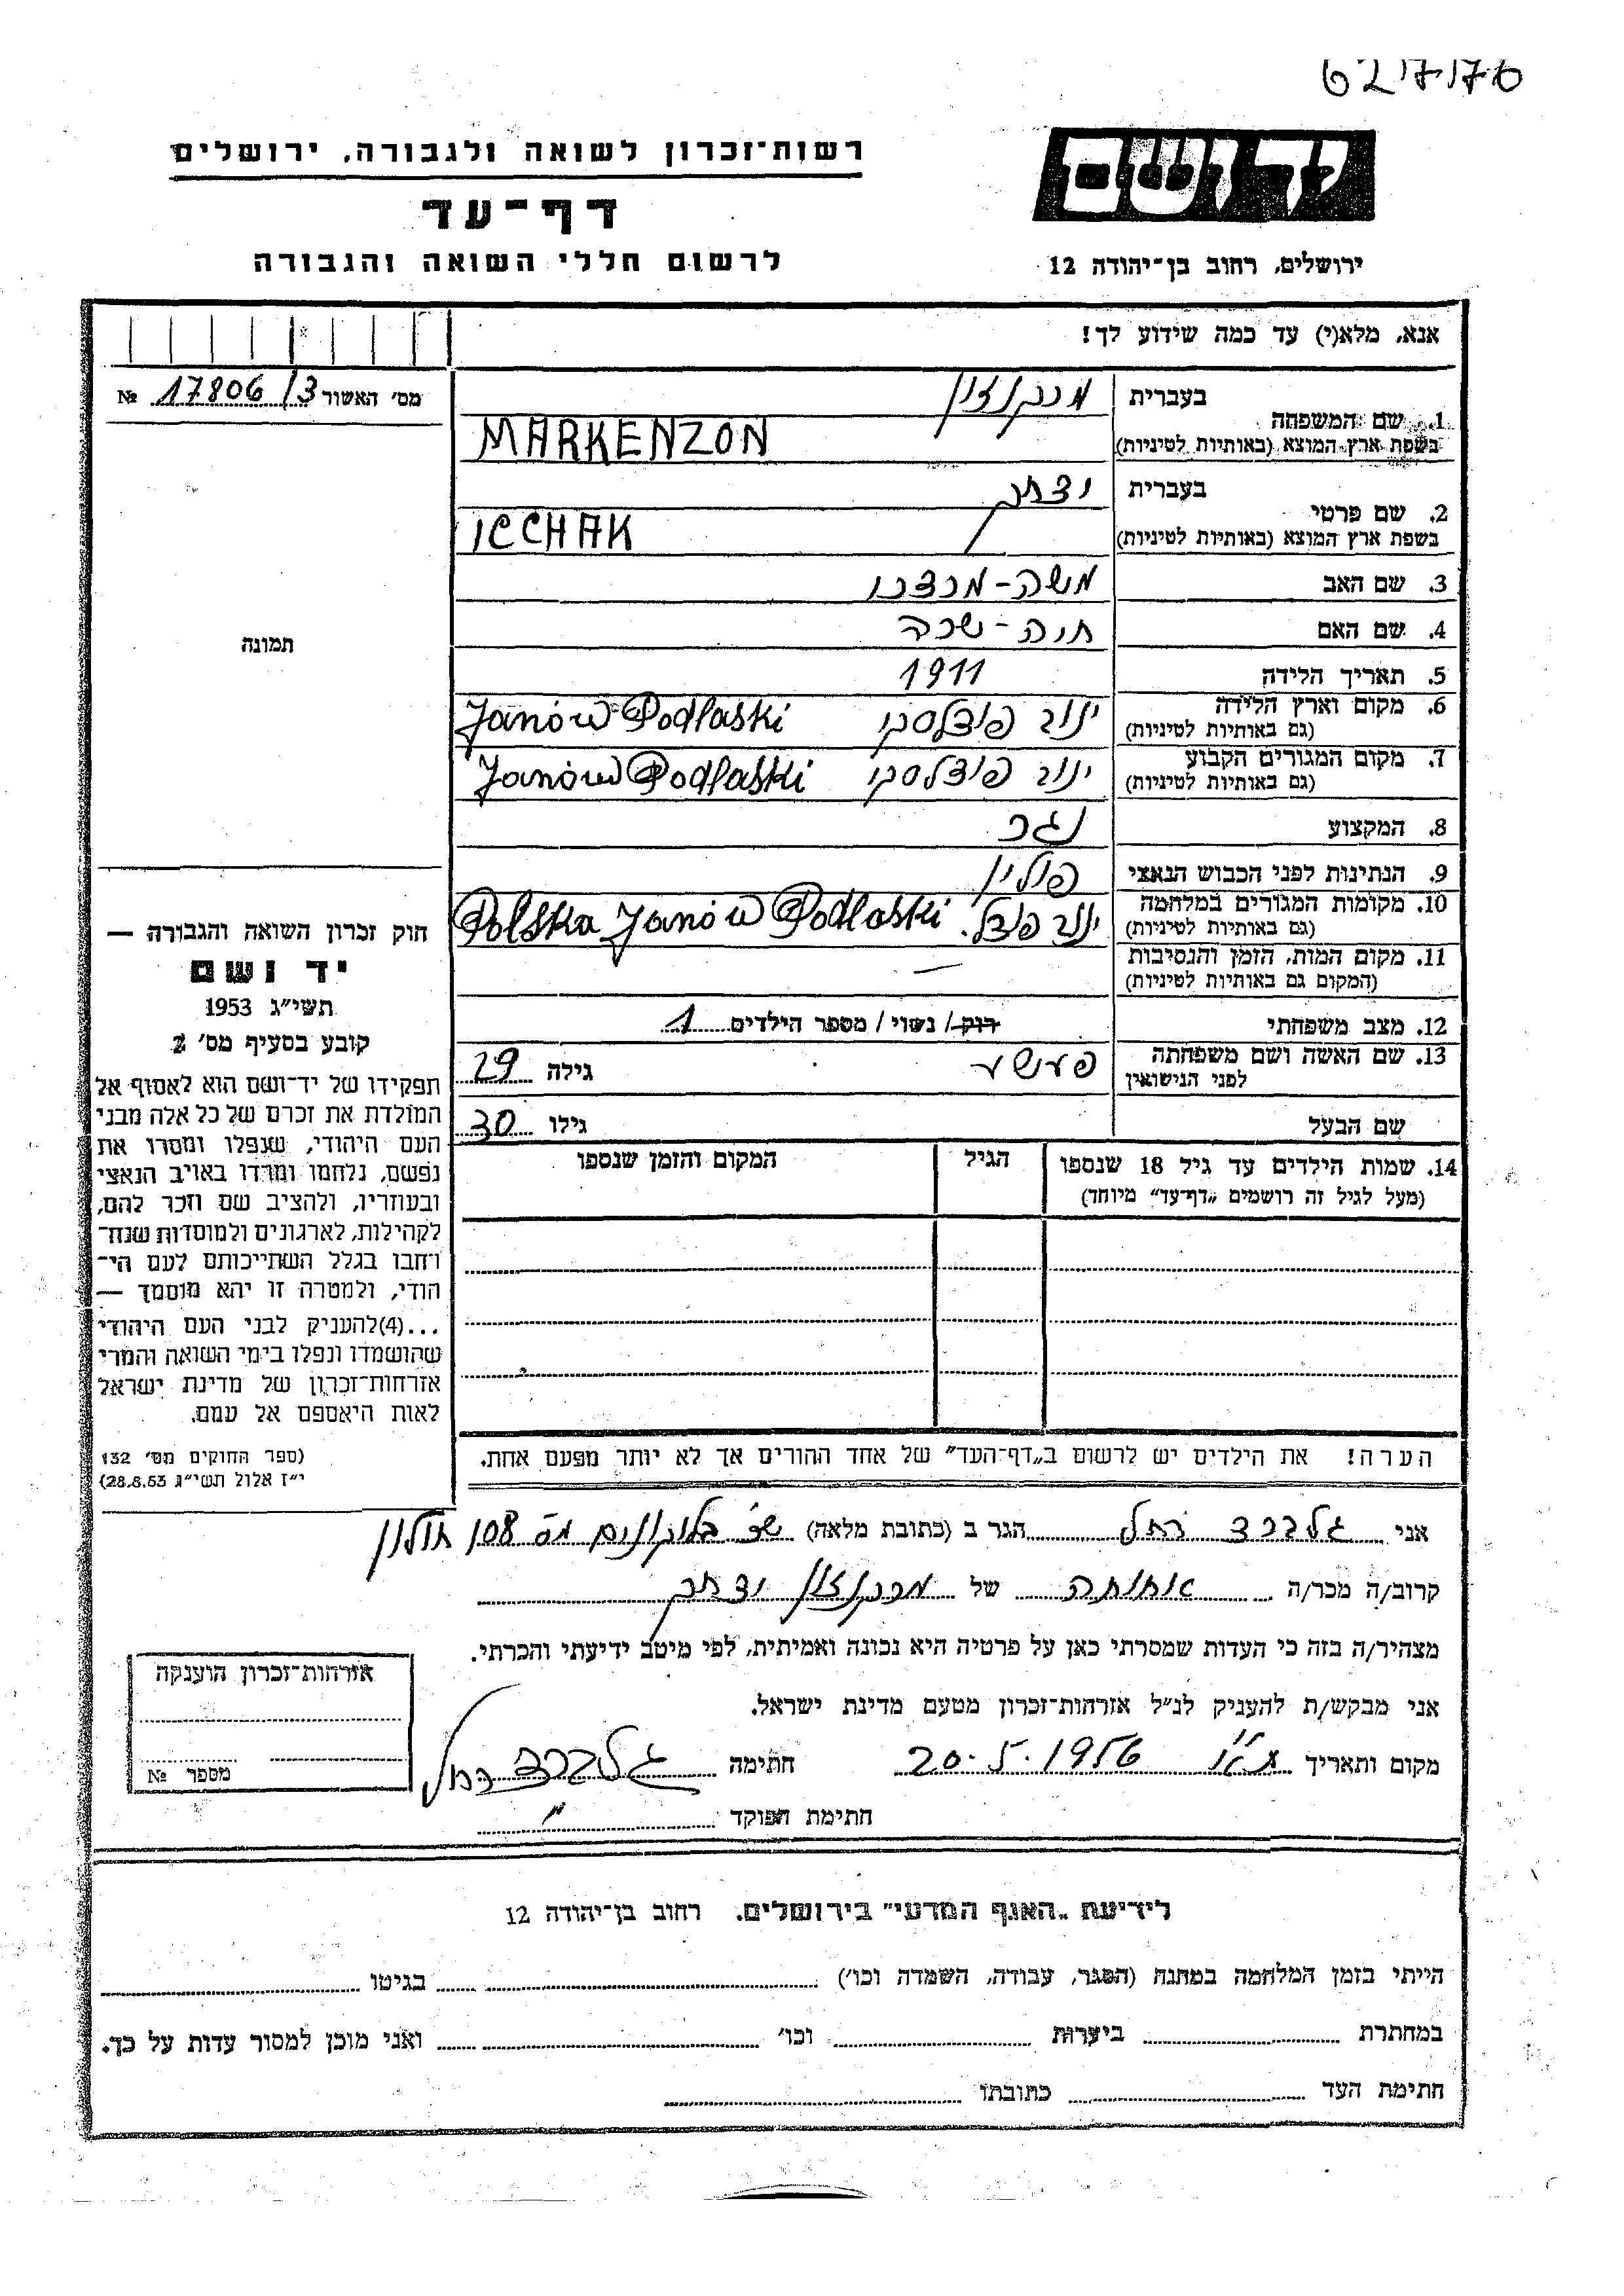 6217176
יד ושם
רשות־זכרון לשואה ולגבורה, ירושלים
דף־עד
לרשום חללי השואה והגבורה
ירושלים, רחוב בן־יהודה 12
אנא, מלא(י) עד כמה שידוע לך!
מס' האשור 17806/3 №
1. שם המשפחה בעברית מרקנזון
בשפת ארץ המוצא (באותיות לטיניות) MARKENZON
2. שם פרטי בעברית יצחק
בשפת ארץ המוצא (באותיות לטיניות) ICCHAK
3. שם האב משה-מרדכי
4. שם האם חיה-שרה
5. תאריך הלידה 1911
6. מקום וארץ הלידה (גם באותיות לטיניות) ינוב פודלסקי Janów Podlaski
7. מקום המגורים הקבוע (גם באותיות לטיניות) ינוב פודלסקי Janów Podlaski
8. המקצוע נגר
9. הנתינות לפני הכבוש הנאצי פולין
10. מקומות המגורים במלחמה (גם באותיות לטיניות) ינוב פודל. Polska Janów Podlaski
11. מקום המות, הזמן והנסיבות (המקום גם באותיות לטיניות) —
12. מצב משפחתי רוק / נשוי / מספר הילדים 1
13. שם האשה ושם משפחתה לפני הנישואין גילה 29
שם הבעל גילו 30
14. שמות הילדים עד גיל 18 שנספו הגיל המקום והזמן שנספו
(מעל לגיל זה רושמים „דף־עד" מיוחד)
הערה! את הילדים יש לרשום ב„דף־העד" של אחד ההורים אך לא יותר מפעם אחת.
תמונה
חוק זכרון השואה והגבורה —
יד ושם
תשי"ג 1953
קובע בסעיף מס' 2
תפקידו של יד־ושם הוא לאסוף אל
המולדת את זכרם של כל אלה מבני
העם היהודי, שנפלו ומסרו את
נפשם, נלחמו ומרדו באויב הנאצי
ובעוזריו, ולהציב שם וזכר להם,
לקהילות, לארגונים ולמוסדות שנח־
רחבו בגלל השתייכותם לעם הי־
הודי, ולמטרה זו יהא מוסמך —
...(4)להעניק לבני העם היהודי
שהושמדו ונפלו בימי השואה והמרי
אזרחות־זכרון של מדינת ישראל
לאות היאספם אל עמם.
(ספר החוקים מס' 132
י"ז אלול תשי"ג 28.8.53)
אני גלברד רחל הגר ב (כתובת מלאה) שכ' בלוקונים מס 108 חולון
קרוב/ה מכר/ה אחותה של מרקנזון יצחק
מצהיר/ה בזה כי העדות שמסרתי כאן על פרטיה היא נכונה ואמיתית, לפי מיטב ידיעתי והכרתי.
אני מבקש/ת להעניק לנ"ל אזרחות־זכרון מטעם מדינת ישראל.
מקום ותאריך ת"א 20.5.1956 חתימה גלברד רחל
חתימת הפוקד
אזרחות־זכרון הוענקה
מספר №
לידיעת „האגף המדעי" בירושלים, רחוב בן־יהודה 12
הייתי בזמן המלחמה במחנה (הסגר, עבודה, השמדה וכו') בגיטו
במחתרת ביערות וכו' ואני מוכן למסור עדות על כך.
חתימת העד כתובתו